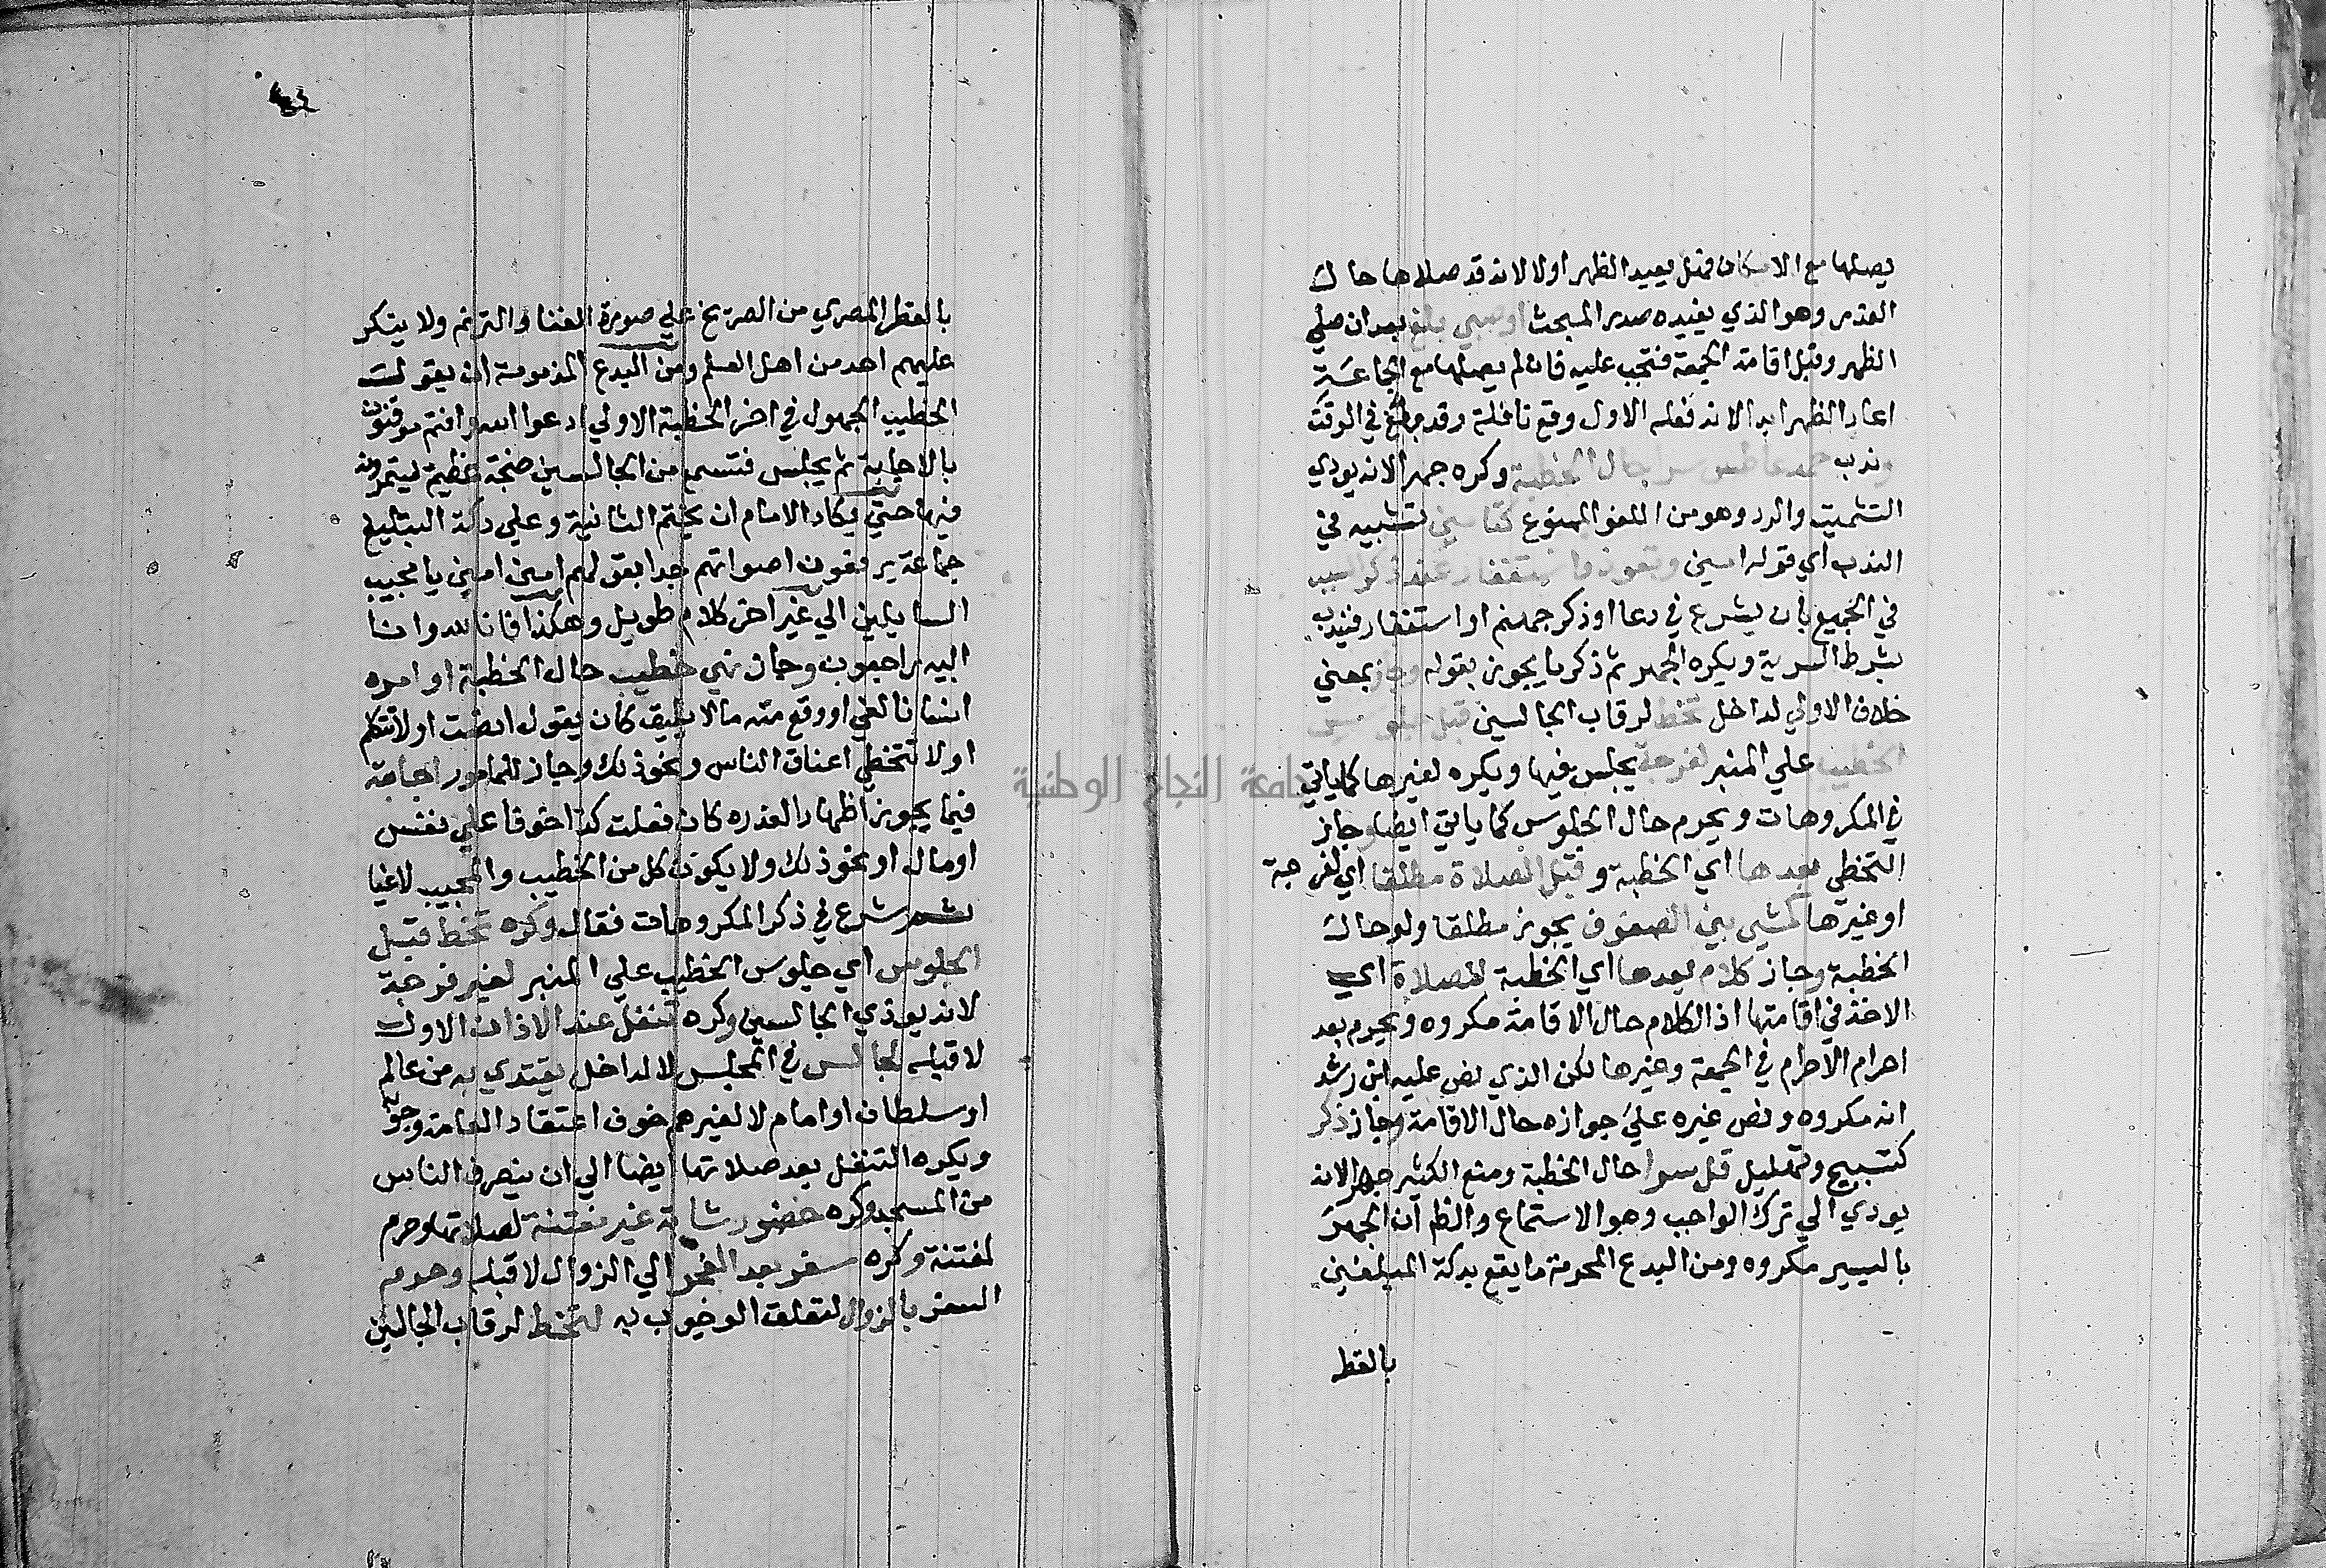 يصلها مع الامكان فهل يعيد الظهر اولا لانه قد صلاها حال
العذر وهو الذي يفيده صدر المبحث اوصبي بلغ بعد ان صلي
الظهر وقبل اقامة الجمعة فتجب عليه فان لم يصلها مع الجماعة
اعاد الظهر ابدا لان فعله الاول وقع نافلة وقد في الوقت
وندب حمد عاطس سرا حال الخطبة وكره جهرا لانه يودي
التشميت والرد وهو من اللغو الممنوع كتامين تشبيه في
الندب اي قوله امين وتعوذ واستغفار عند ذكر السبب
في الجميع بان يشرع في دعا او ذكر جهنم او استغفار فيندب
بشرط السرية ويكره الجهر ثم ذكر ما يجوز بقوله وجاز بمعني
خلاف الاولي لداخل تخط لرقاب الجالسين قبل جلوس
الخطيب علي المنبر لفرجة يجلس فيها ويكره لغيرها كما ياتي
في المكروهات ويحرم حال الجلوس كما ياتي ايضا وجاز
التخطي بعدها اي الخطبة وقبل الصلاة مطلقا اي لفرجة
او غيرها كمشي بين الصفوف يجوز مطلقا ولو حال
الخطبة وجاز كلام بعدها اي الخطبة للصلاة اي
الاخذ في اقامتها اذ الكلام حال الاقامة مكروه ويحرم بعد
احرام الاحرام في الجمعة وغيرها لكن الذي نص عليه ابن رشد
انه مكروه ونص غيره علي جوازه حال الاقامة وجاز ذكر
كتسبيح وتهليل قل سرا حال الخطبة ومنع الكثير جهرا لانه
يودي الي ترك الواجب وهو الاستماع والظ ان الجهر
باليسير مكروه ومن البدع المحرمة ما يقع بدكة المبلغين
بالقطر
بالقطر المصري من الصريخ علي صورة الغنا والترنم ولا ينكر
عليهم احد من اهل العلم ومن البدع المذمومة ان يقول
الخطيب الجهول في اخر الخطبة الاولي ادعوا الله وانتم موقنون
بالاجابة ثم يجلس فتسمع من الجالسين ضجة عظيمة يستمرون
فيها حتي يكاد الامام ان يختم الثانية وعلي دكة التبليغ
جماعة يرفعون اصواتهم جدا بقولهم امين امين يا مجيب
السايلين الي غير اخر كلام طويل وهكذا فانا لله وانا
اليه راجعون وجاز نهي خطيب حال الخطبة او امره
انسانا لغي او وقع منه ما لا يليق كان يقول انصت او لا تتكلم
او لا تتخطي اعناق الناس ونحو ذلك وجاز للمامور اجابته
فيما يجوز اظهار العذره كان فعلت كذا خوفا علي نفس
او مال او نحو ذلك ولا يكون كل من الخطيب والمجيب لاغيا
ثم شرع في ذكر المكروهات فقال وكره تخط قبل
الجلوس اي جلوس الخطيب علي المنبر لغير فرجة
لانه يوذي الجالسين وكره تنفل عند الاذان الاول
لا قبله لجالس في المجلس لا لداخل يقتدي به من عالم
او سلطان او امام لا لغيرهم خوف اعتقاد العامة وجوبه
ويكره التنفل بعد صلاتها ايضا الي ان ينصرف الناس
من المسجد وكره حضور شابة غير مفتنة لصلاتها وحرم
لمفتنة وكره سفر بعد الفجر الي الزوال لا قبله وحرم
السفر بالزوال لتعلق الوجوب به لتخط لرقاب الجالسين
جامعة النجاح الوطنية